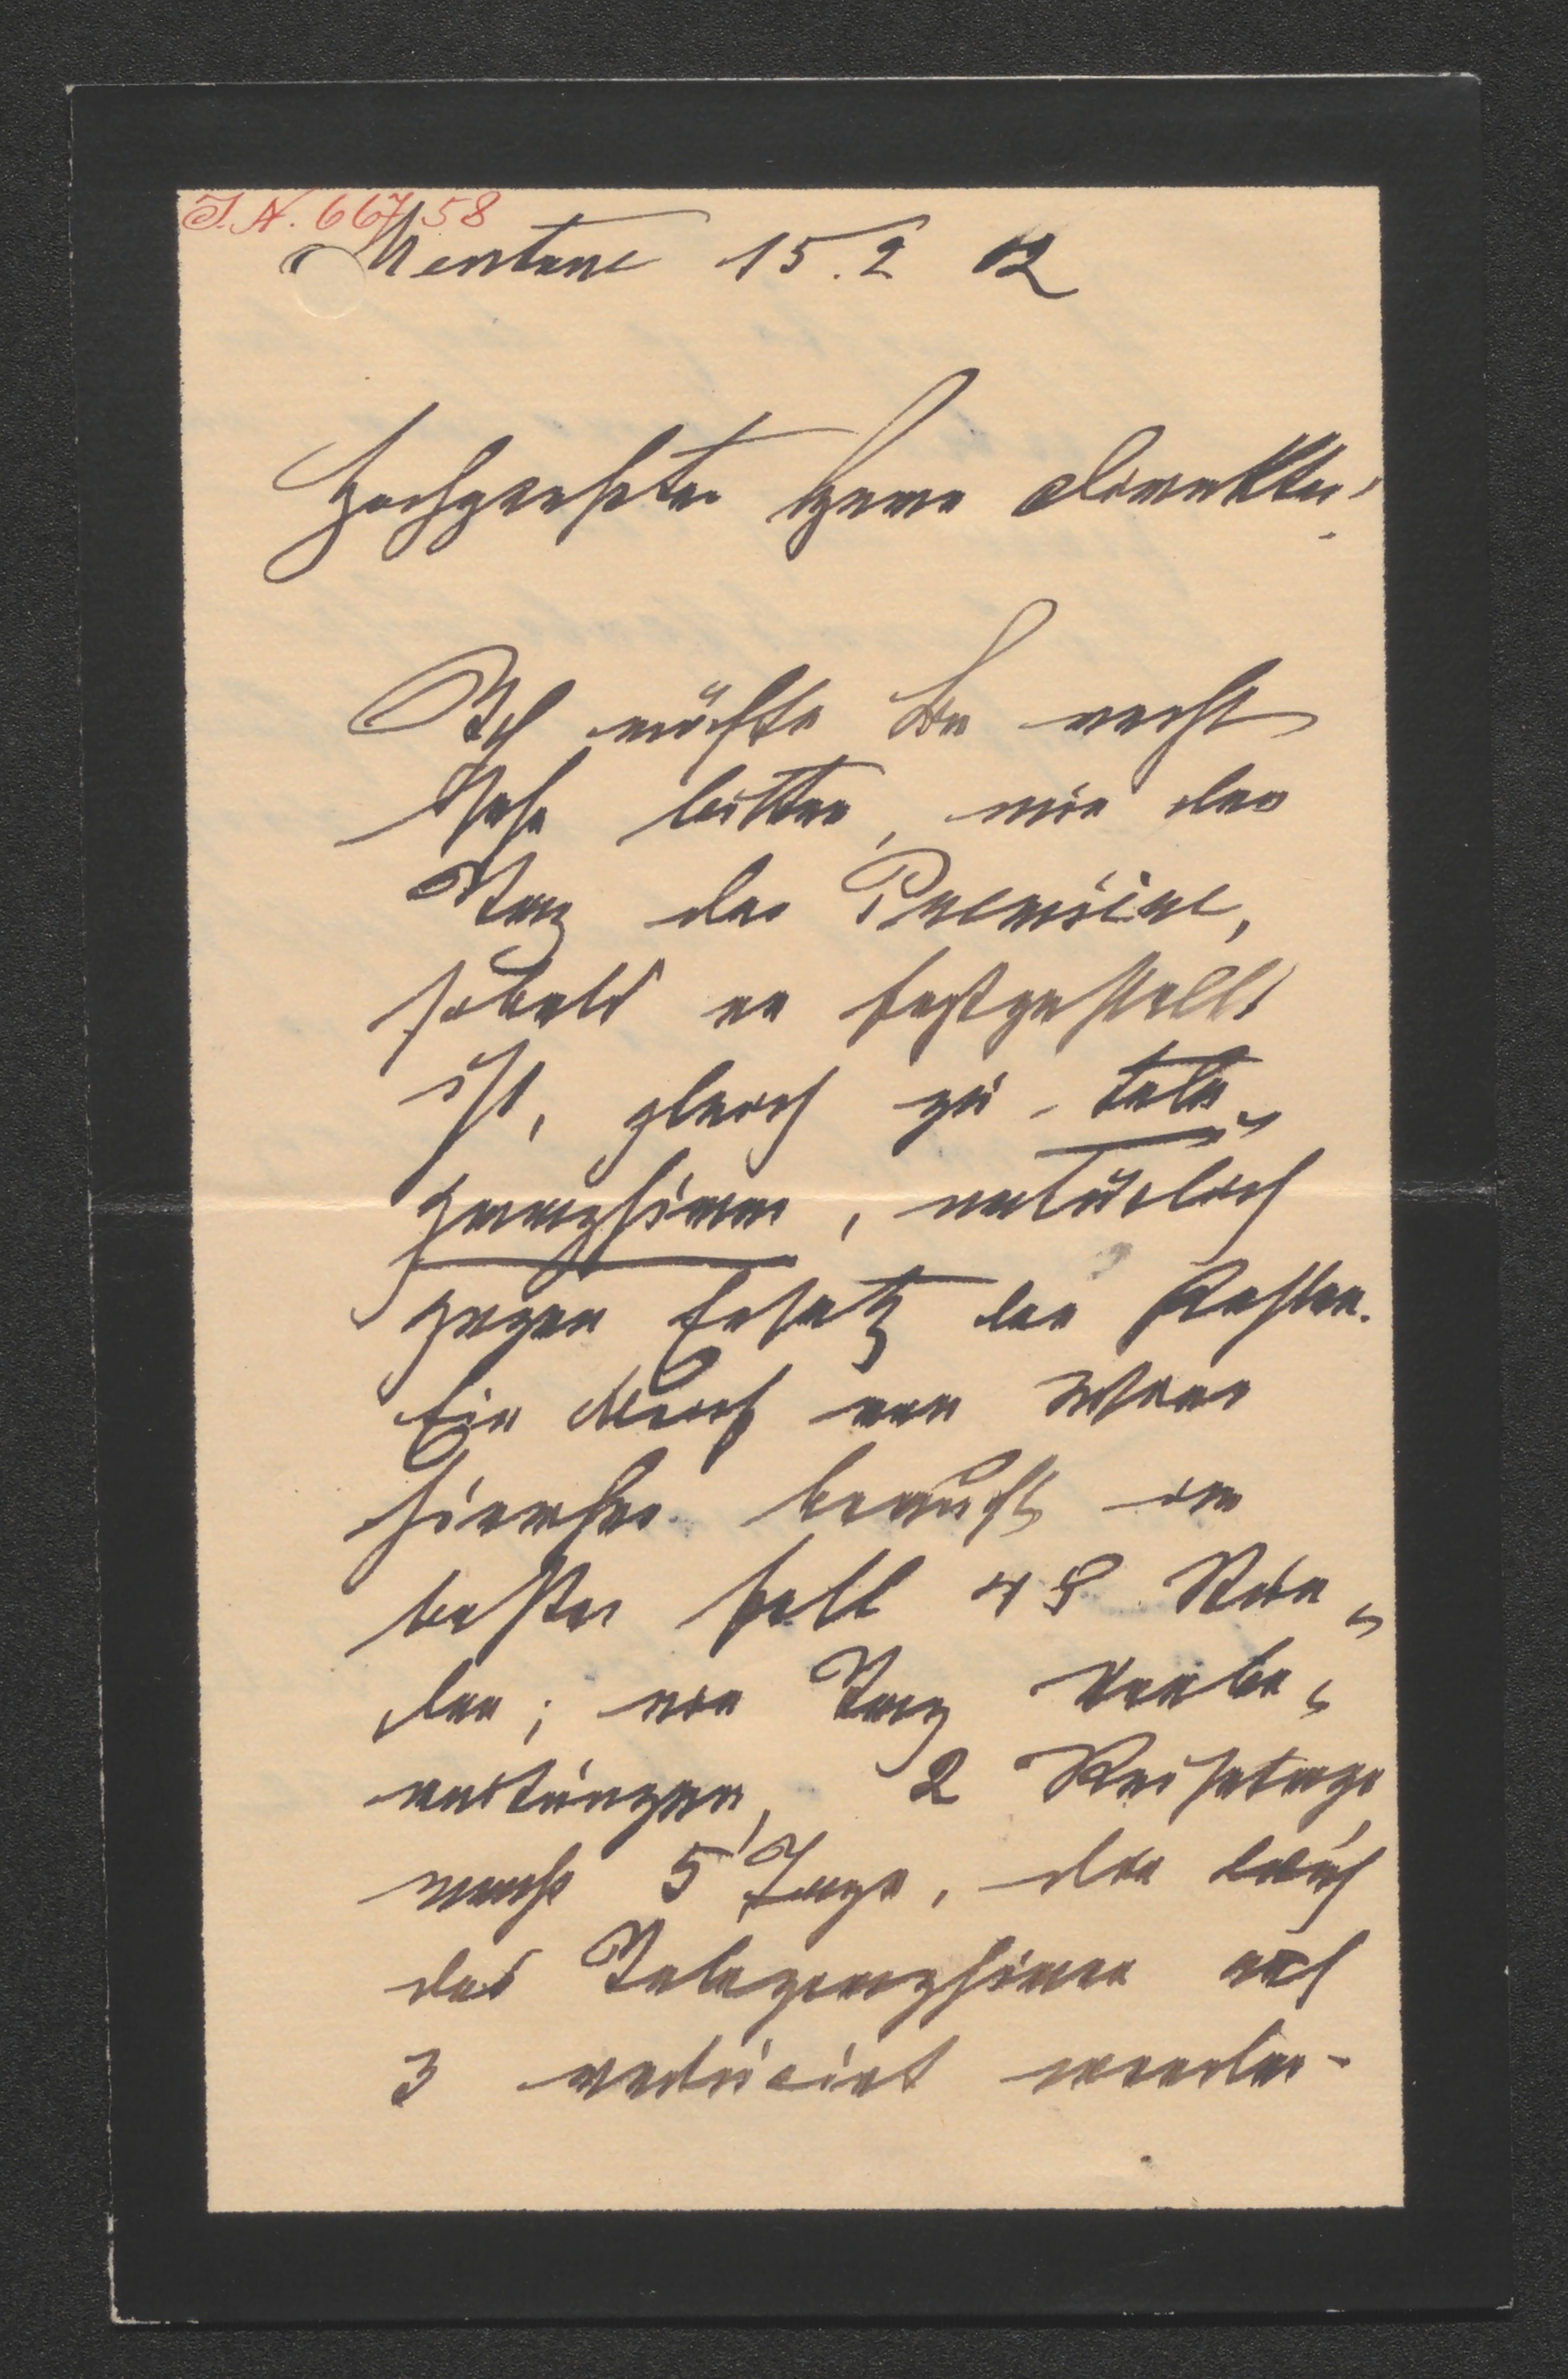 I.N. 667/58
Mentone 15.2 02
Hochgeehrter Herr Direktor!
Ich möchte Sie recht
sehr bitten, mir den
Tag der Premiere,
sobald er festgestellt
ist, gleich zu tele-
graphiren, natürlich
gegen Ersatz der Kosten.
Ein Brief von Wien
hierher braucht im
besten Fall 48 Stun-
den; ein Tag Vorbe-
reitungen, 2 Reisetage,
macht 5 Tage, die durch
das Telegraphiren auf
3 reducirt werden.